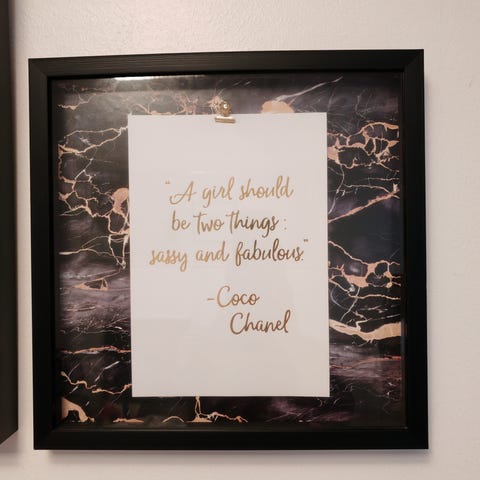 "A girl should
be two things:
sassy and fabulous."
-Coco
Chanel